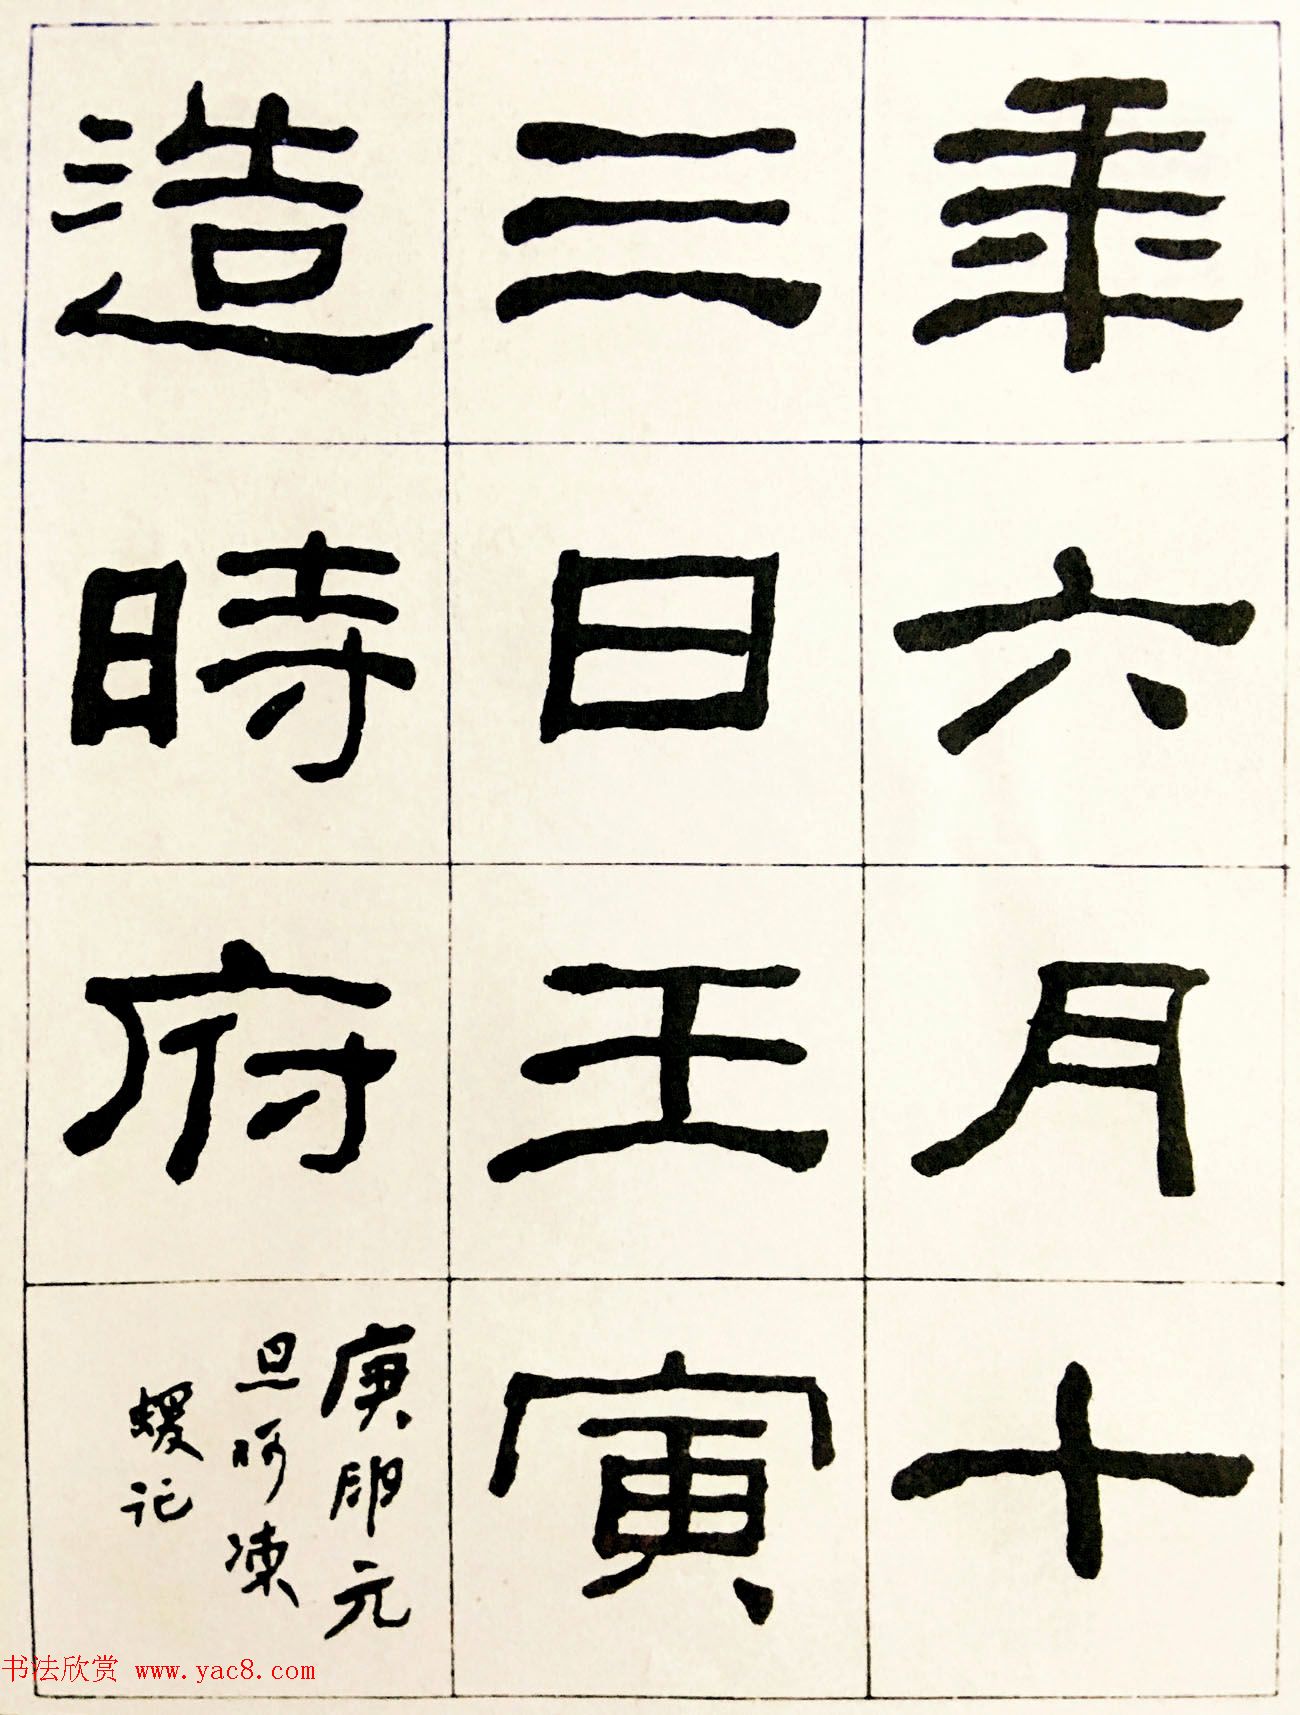 年六月十
三日壬寅
造時府
庚申元
旦呵凍
蝯記
书法欣赏 www.yac8.com